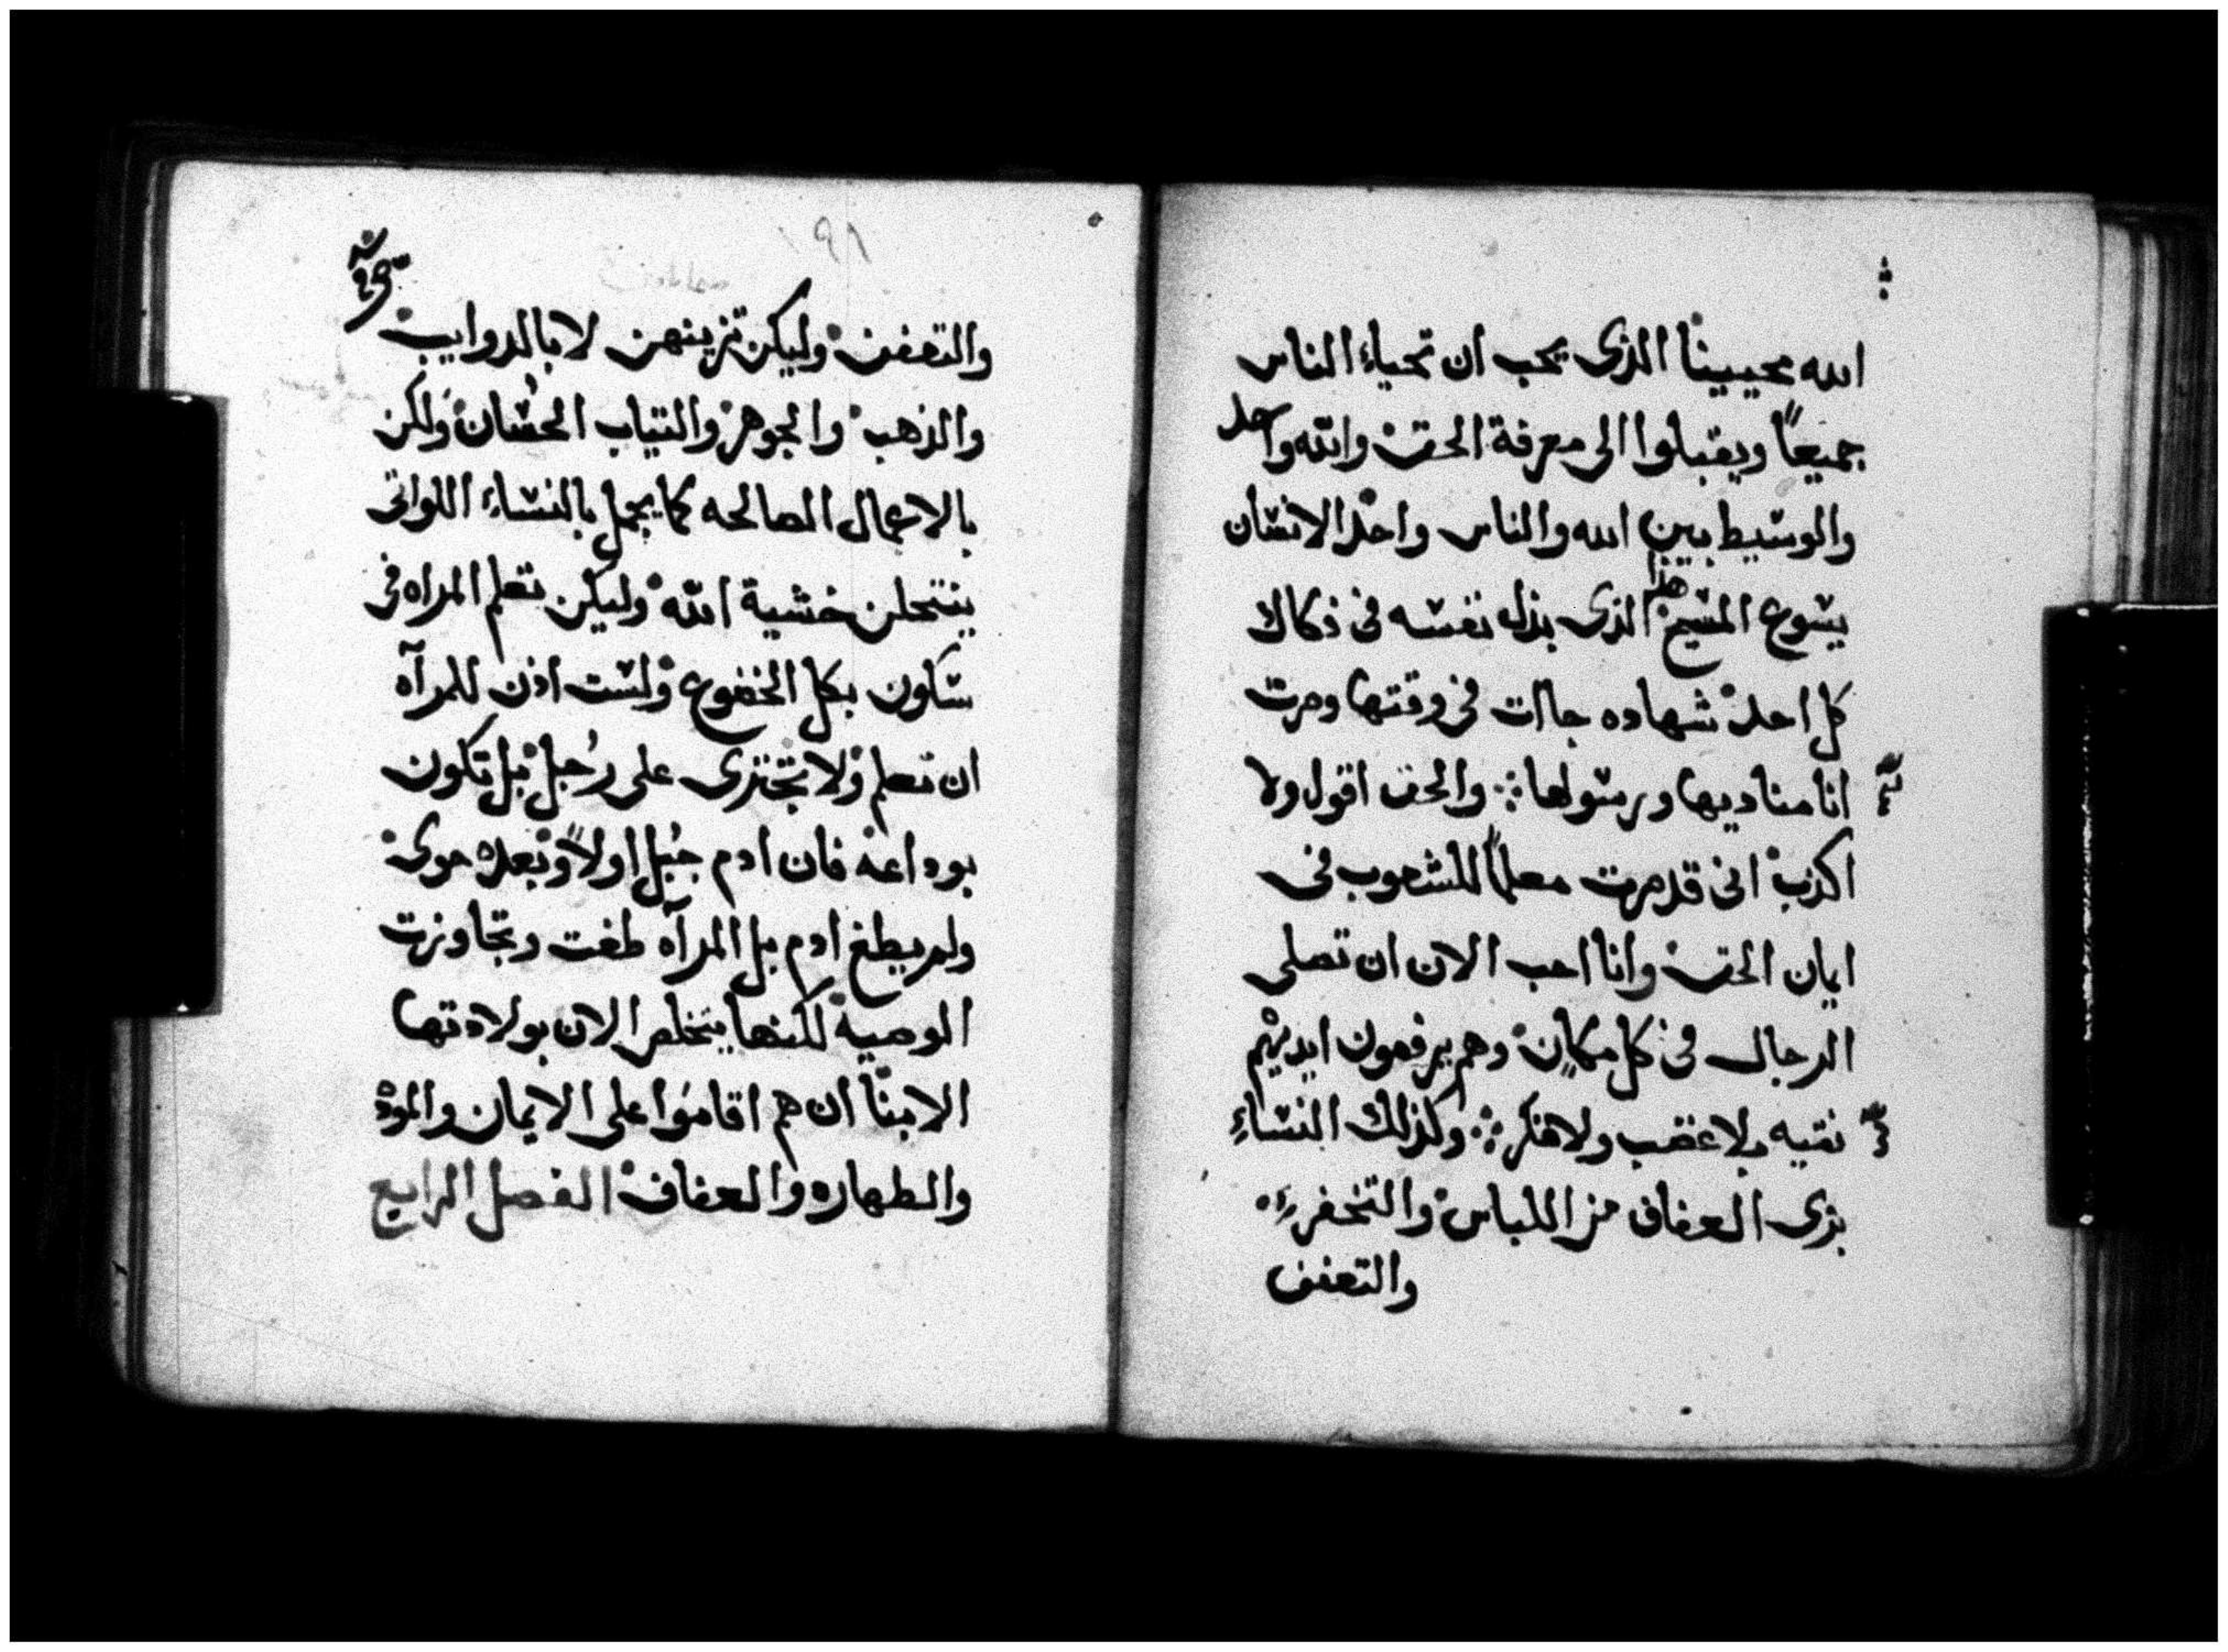 الله محييينا الذى يحب ان تحياء الناس
جميعاً ويقبلوا الى معرفة الحق والله واحد
والوسيط بين الله والناس واحد الانسان
يسوع المسيح هذا الذى بذل نفسه فى فكاك
كل احد شهاده جاات فى وقتها وصرت
انا مناديها ورسولها والحق اقول ولا
اكذب انى قد صرت معلماً للشعوب فى
ايمان الحق وانا احب الان ان تصلى
الرجال فى كل مكان وهم يرفعون ايديهم
نقيه بلا غضب ولا فكر وكذلك النساءِ
بزى العفاف من اللباس والتخفر
والتعفف
١٩١
والتعفف وليكن تزينهن لا بالدوايب
والذهب والجوهر والتياب الحُسان ولكن
بالاعمال الصالحه كما يجمل بالنساء اللواتى
ينتحلن خشية الله وليكن تعلم المراه فى
سكون بكل الخضوع ولست اذن للمرآه
ان تعلم ولا تجتزى على رُجل بل تكون
بوداعه فان ادم جُبل اولاً وبعده حوى
ولم يطغ ادم بل المرآه طغت وتجاوزت
الوصيه لكنها يتخلص الان بولادتها
الابنا ان هم اقاموا على الايمان والموده
والطهاره والعفاف الفصل الرابع